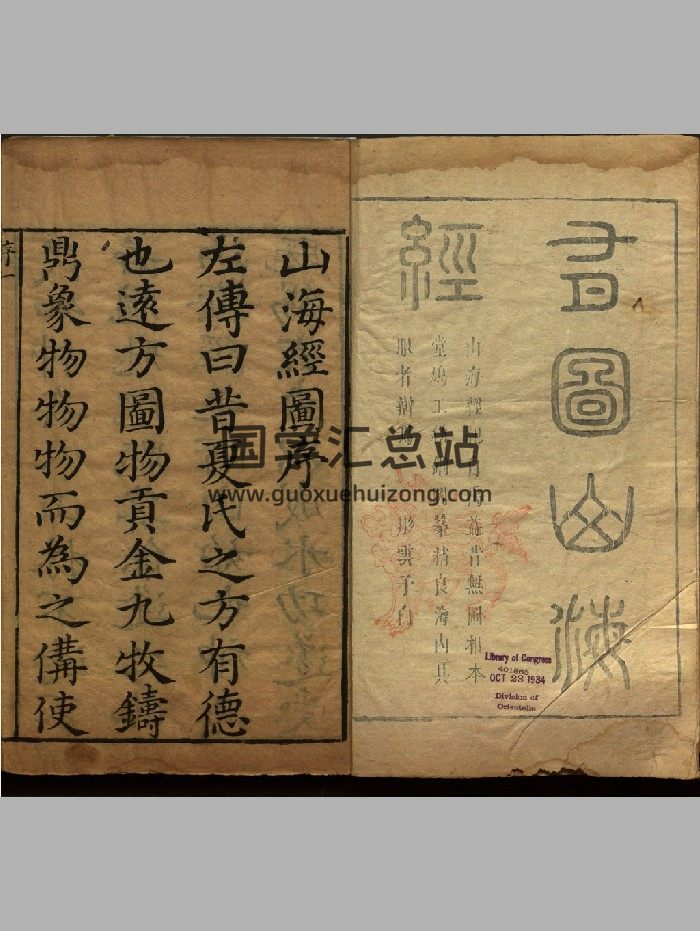 有圖山海
經
山海經 昔無圖相本
堂鳩工 篆精良海內具
眼者辨 彤雲子白
Library of Congress
OCT 23 1934
Division of
Orientalia
山海經圖序
左傳曰昔夏氏之方有德
也遠方圖物貢金九牧鑄
鼎象物物物而為之備使
序一
国学汇总站
www.guoxuehuizong.com